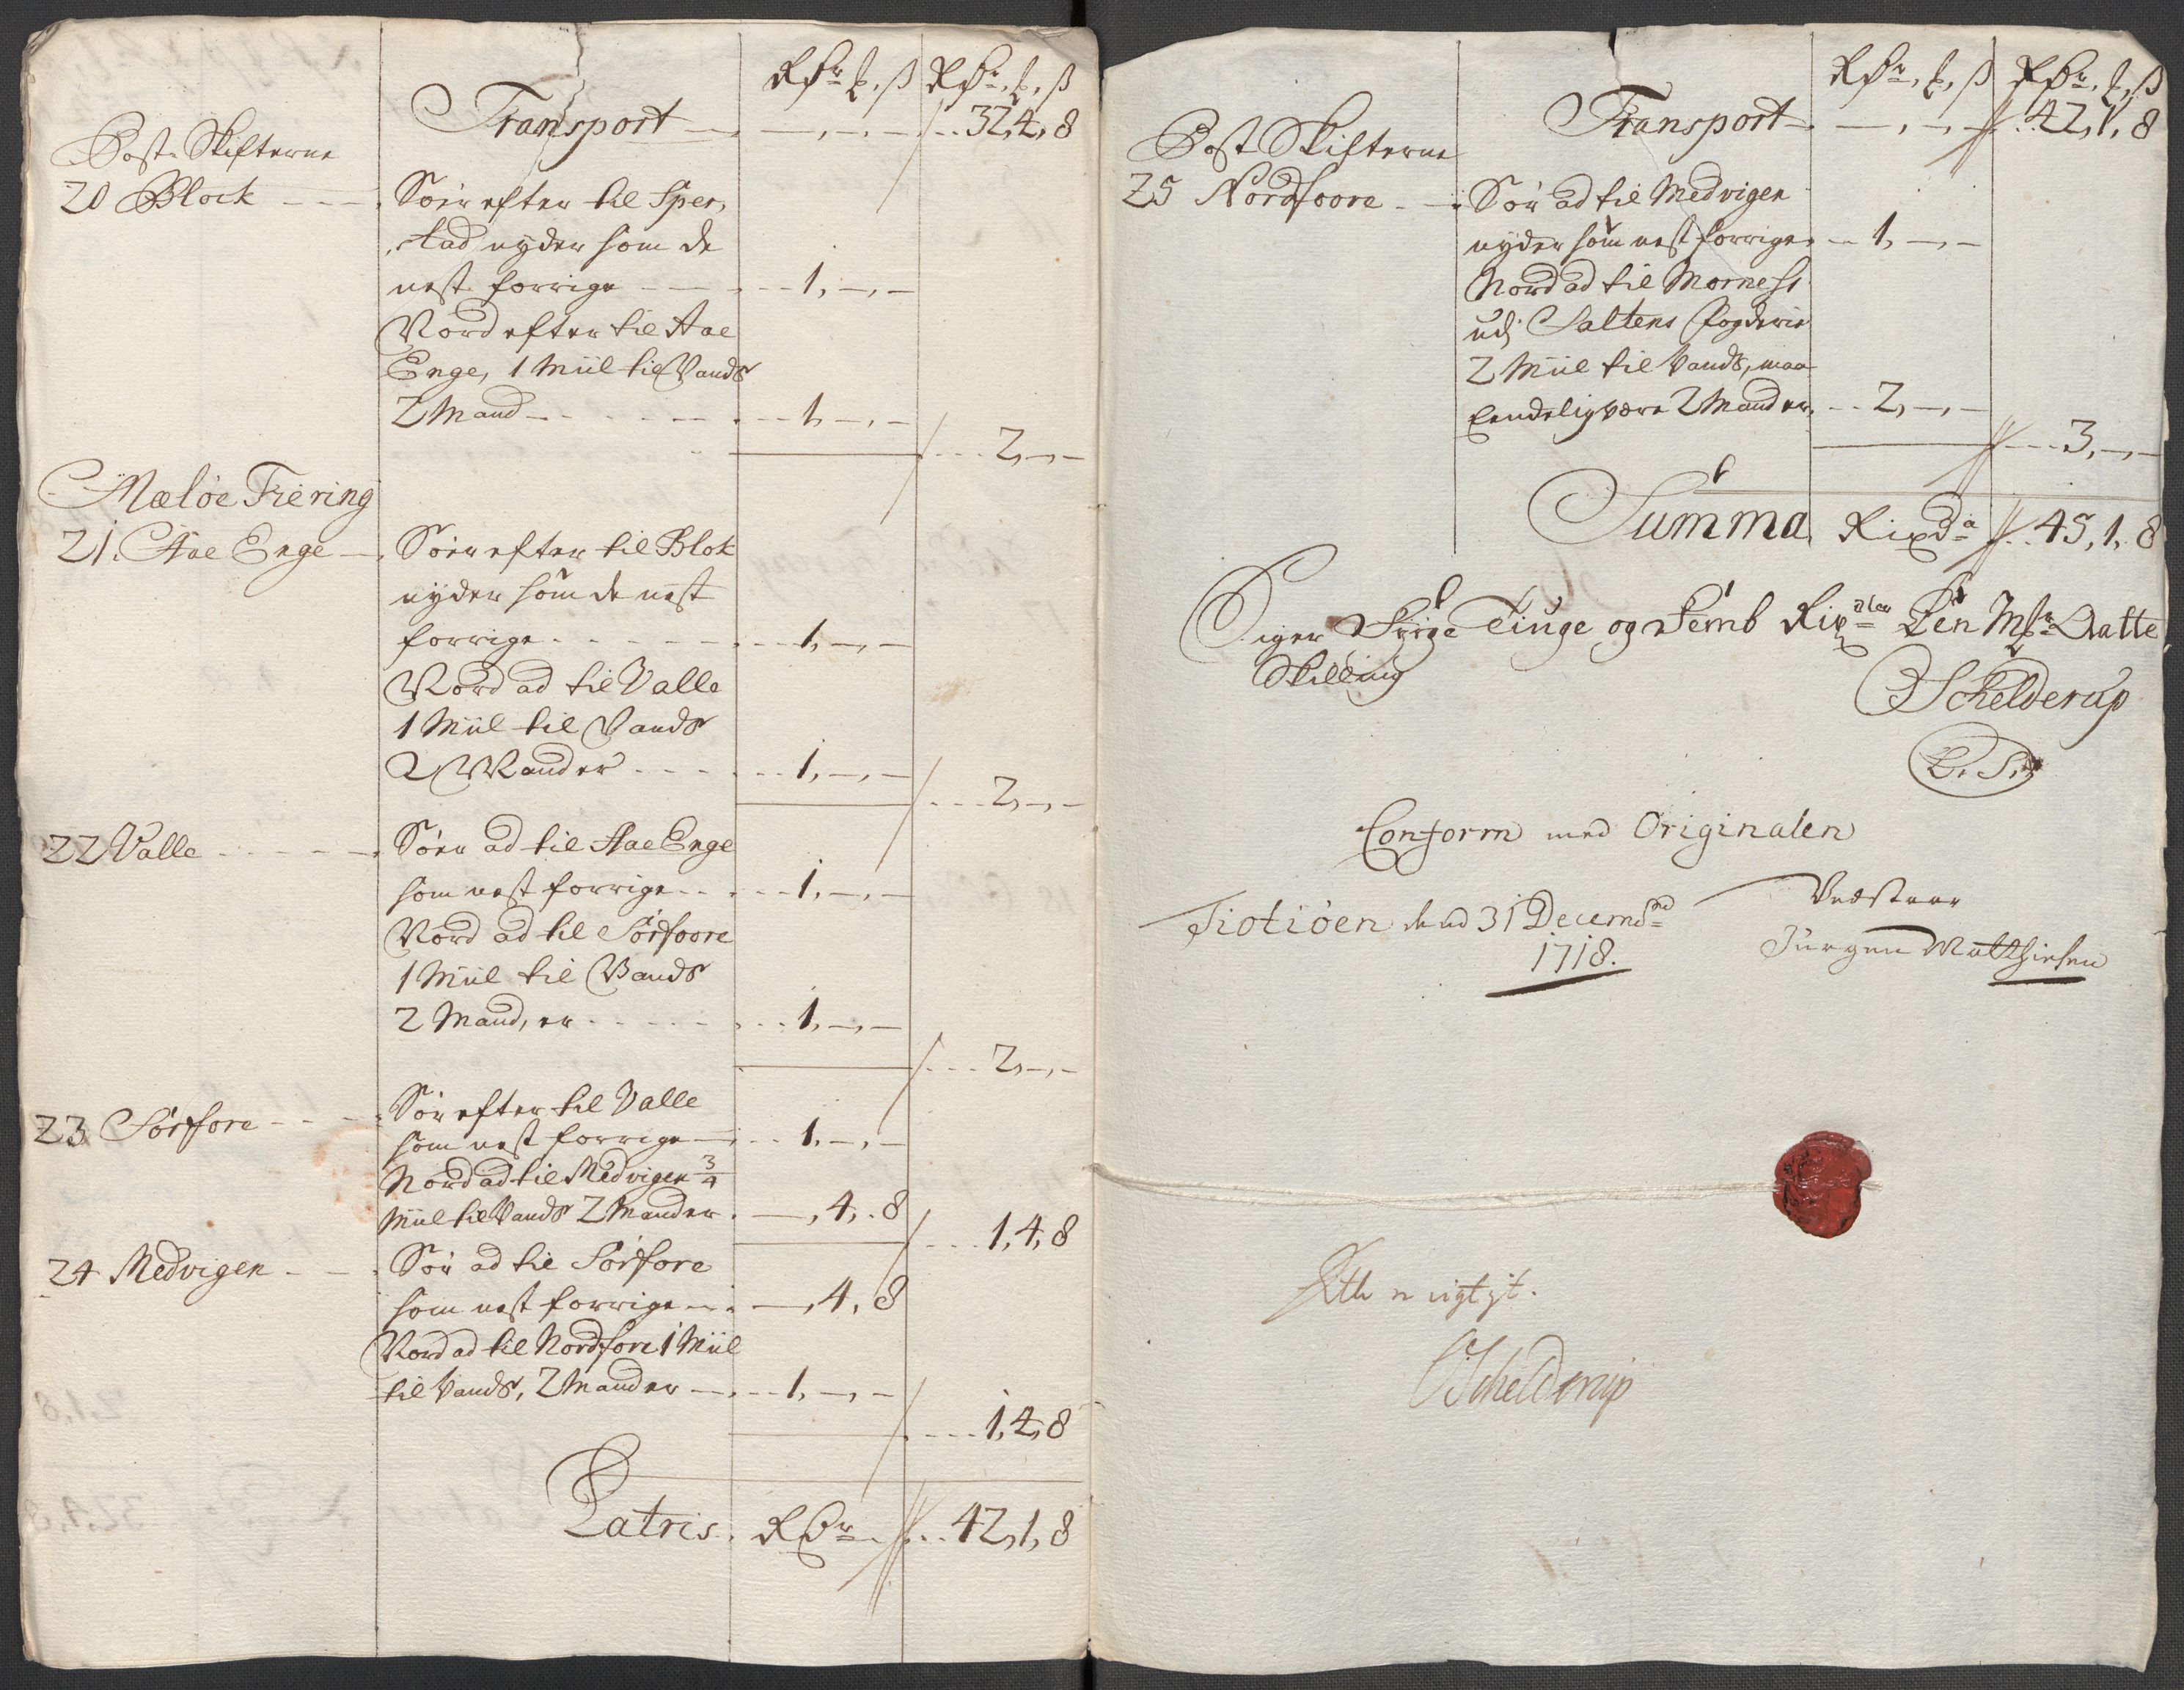 Rdr, ,ß Rdr, ,ß
Transport - 32,4,8
Post Skifterne
20 Block Søer efter til Sper,
stad nyder som de
nest forrige - 1,-,-
Nord efter til Aae
Enge, 1 Miil til Vands
2 Mand - 1,-,-
2,-,-
Meløe Fiering
21. Aae Enge Søer efter til Blok
nyder som de nest
forrige - 1,-,-
Nord ad til Valle
1 Miil til Vands
2 Mander - 1,-,-
2,-,-
22 Valle Søer ad til Aae Enge
som nest forrige - 1,-,-
Nord ad til Sørfoore
1 Miil til Vands
2 Mand, er - 1,-,-
2,-,-
23 Sørfore Sør efter til Valle
som nest forrige - 1,-,-
Nord ad til Medvigen 3/4
Miil til Vands 2 Mander - -,4,8
1,4,8
24 Medvigen Sør ad til Sørfore
som nest forrige - -,4,8
Nord ad til Nordfore 1 Miil
til Vands, 2 Mander - 1,-,-
1,4,8
Latris Rdr 42,1,8
Rdr, ,ß Rdr, ,ß
Transport - 42,1,8
Post Skifterne
25 Nordfoore Sør ad til Medvigen
nyder som nest forrige - 1,-,-
Nord ad til Morness
udj Saltens fogderie
2 Miil til Vands, maa
Endelig være 2 Mander - 2,-,-
3,-,-
Summa Rixd 45,1,8
Siger Fyrge Tiuge og Femb Rixdler Een Mk Aatte
Skilling
Schelderup
L.S.
Conform med Originalen
Tiotiøen dend 31 Decembr Vedstaar
1718. Jürgen Matthiesen
rigtigt.
Schelderup